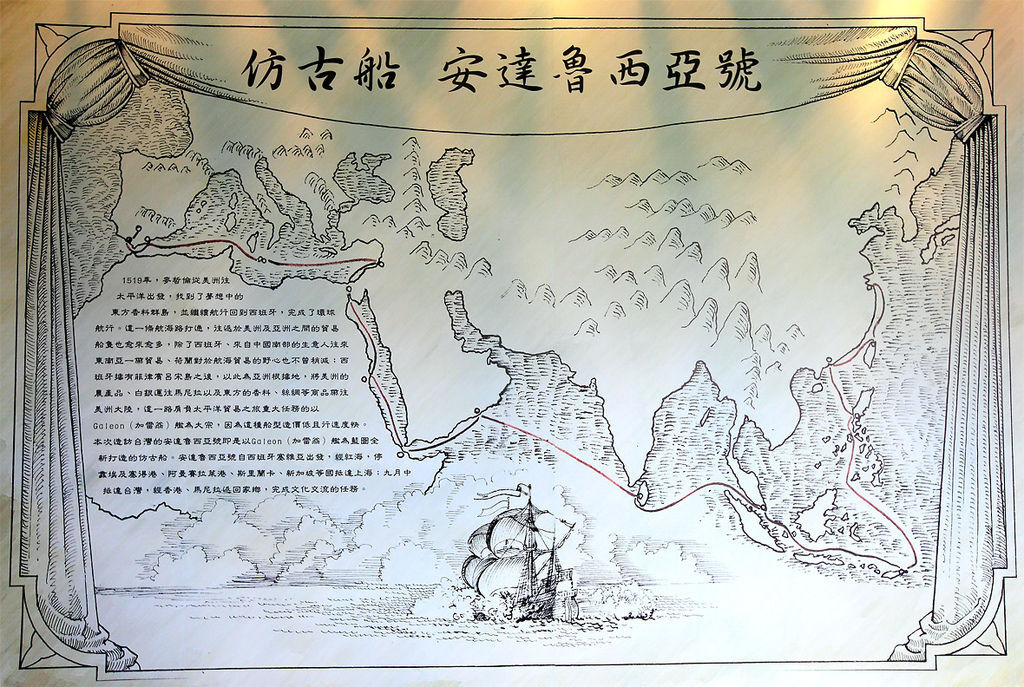 仿古船 安達魯西亞號
1519年，麥哲倫從美洲往
太平洋出發，找到了夢想中的
東方香料群島，並繼續航行回到西班牙，完成了環球
航行。這一條航海路打通，往返於美洲及亞洲之間的貿易
船隻也愈來愈多，除了西班牙、來自中國南部的生意人往來
東南亞一帶貿易、荷蘭對於航海貿易的野心也不曾稍減；西
班牙據有菲律賓呂宋島之後，以此為亞洲根據地，將美洲的
農產品、白銀運往馬尼拉以及東方的香料、絲綢等商品帶往
美洲大陸，這一路肩負太平洋貿易之旅重大任務的以
Galeon（加雷翁）艦為大宗，因為這種船型造價低且行進度快。
本次造訪台灣的安達魯西亞號即是以Galeon（加雷翁）艦為藍圖全
新打造的仿古船。安達魯西亞號自西班牙塞維亞出發，經紅海，停
靠埃及塞得港、阿曼賽拉萊港、斯里蘭卡、新加坡等國抵達上海；九月中
抵達台灣，經香港、馬尼拉返回家鄉，完成文化交流的任務。